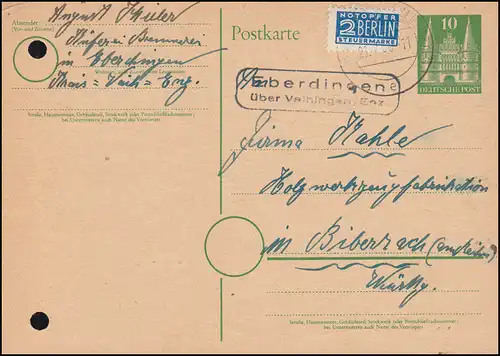 Absender
August
Küferei Brennerei
in Eberdingen
Kreis = Vaih = Enz.
Straße, Hausnummer, Gebäudeteil, Stockwerk oder Postschließfachnummer;
bei Untermietern auch Name des Vermieters
Postkarte
NOTOPFER
2 BERLIN
STEUERMARKE
10
DEUTSCHE POST
Eberdingen
über Vaihingen, Enz
An
Firma Kahle
Holzwerkzeugfabrikation
in Biberach
Württg.
Straße, Hausnummer, Gebäudeteil, Stockwerk oder Postschließfachnummer;
bei Untermietern auch Name des Vermieters